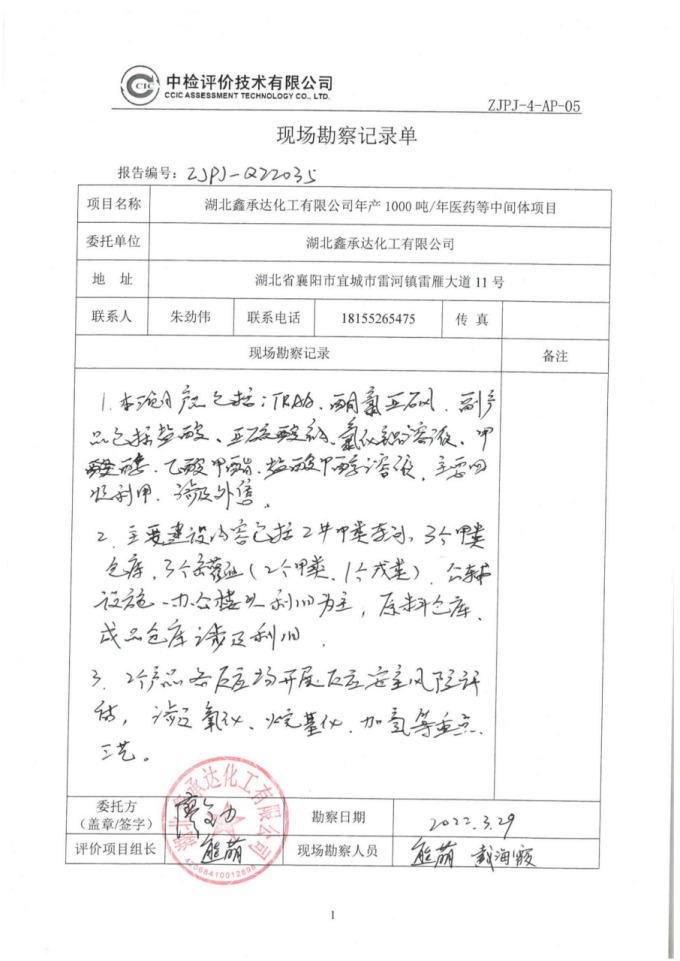 CCIC
中检评价技术有限公司
CCIC ASSESSMENT TECHNOLOGY CO., LTD.
ZJPJ-4-AP-05
现场勘察记录单
报告编号：ZJPJ-Q22035
项目名称 湖北鑫承达化工有限公司年产1000吨/年医药等中间体项目
委托单位 湖北鑫承达化工有限公司
地 址 湖北省襄阳市宜城市雷河镇雷雁大道11号
联系人 朱劲伟 联系电话 18155265475 传 真
现场勘察记录 备注
1. 本项目产品包括：酮、氯亚砜、副产
品包括盐酸、亚硫酸钠、氯化溶液、甲
醛、乙酸甲酯、盐酸甲醇溶液，主要
利用，涉及外售。
2. 主要建设内容包括2个甲类车间，3个甲类
仓库，3个罐组（2个甲类，1个戊类），公辅
设施、办公楼以利旧为主，原料仓库、
成品仓库涉及利旧．
3. 2个产品各反应均开展反应安全风险评
估，涉及氧化、烷基化、加氢等重点
工艺。
委托方
（盖章/签字） 勘察日期 2022.3.29
评价项目组长 熊萌 现场勘察人员 熊萌 戴海霞
湖北鑫承达化工有限公司
1